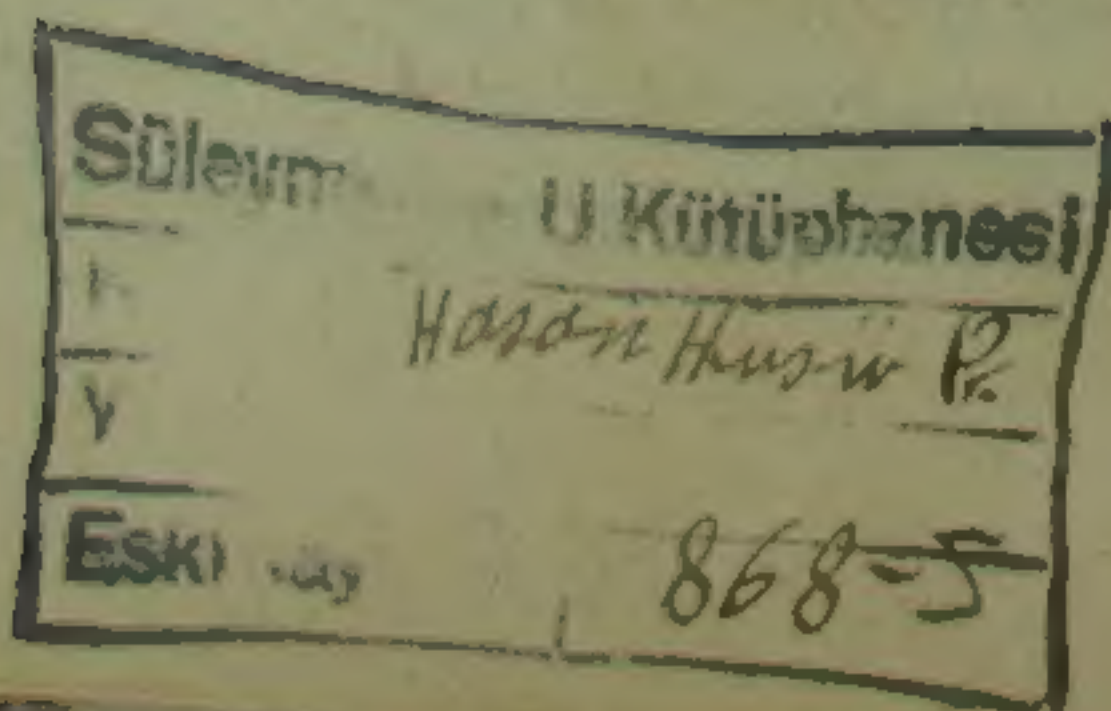 Süleym U Kütüphanesi
K
Hasan Hüsnü P.
Y
Eski 868-5